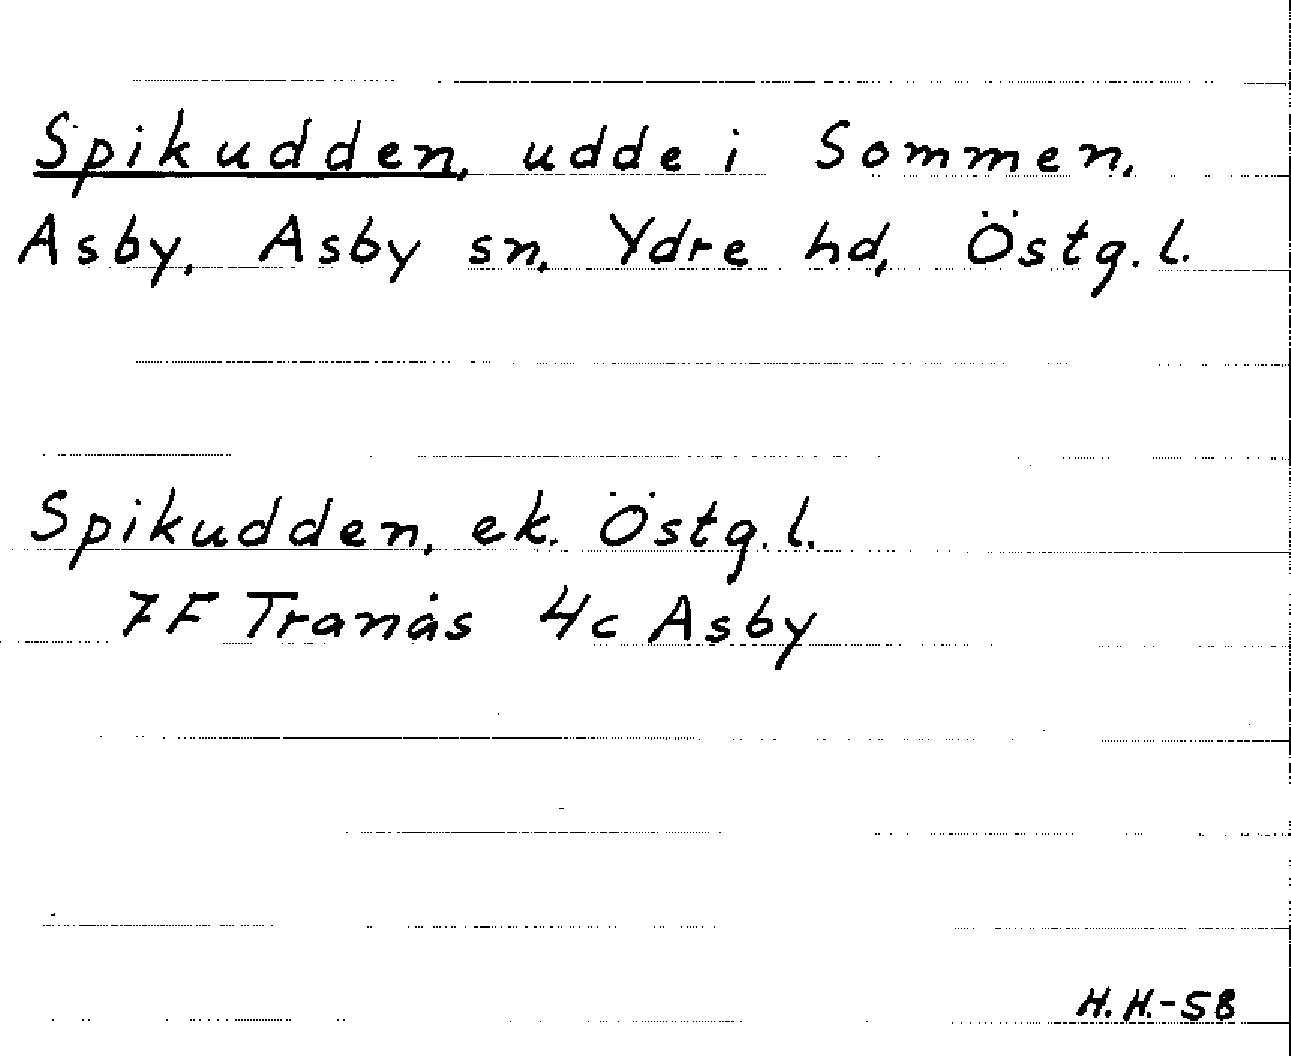 Spikudden, udde i Sommen,
Asby, Asby sn, Ydre hd, Östg.l.
Spikudden, ek. Östg.l.
7F Tranås 4c Asby
H.H.-58